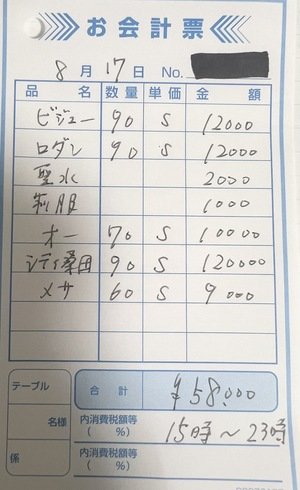 お会計票
8月17日 No.
品名 数量 単価 金額
ビジュー 90 S 12000
ロダン 90 S 12000
聖水 2000
制服 1000
オー 70 S 10000
シティ桑田 90 S 120000
メサ 60 S 9000
テーブル 合計 ¥58,000
名様 内消費税額等 ( %) 15時〜23時
係 内消費税額等 ( %)